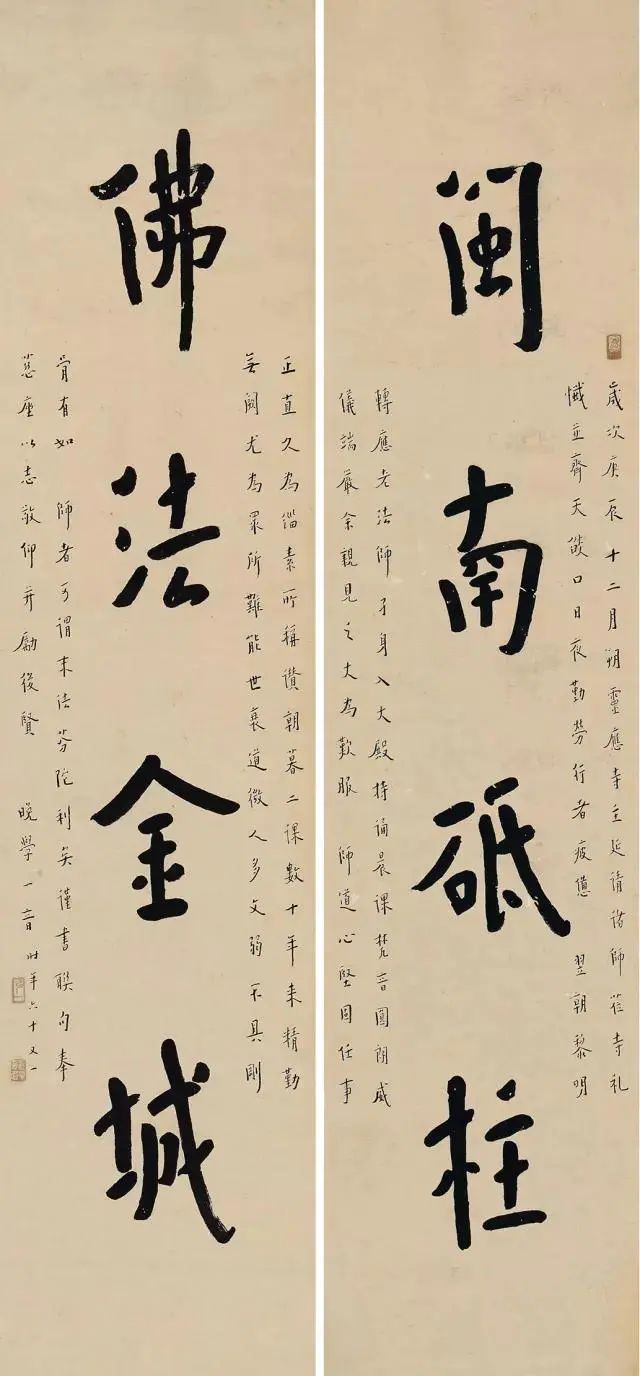 閩南砥柱
歲次庚辰十二月朔靈應寺主延請諸師莅寺礼
懺並齊天燄口日夜勤勞行者疲憊 翌朝黎明
轉應老法師孑身入大殿持誦晨課梵音圓朗威
儀端嚴余親見之大為歎服 師道心堅固任事
佛法金城
正直久為緇素所稱讚朝暮二課數十年來精勤
無闕尤為眾所難能世衰道微人多文弱不具剛
骨有如 師者可謂末法芬陀利矣謹書聯句奉
慈座以志敬仰并勵後賢 晚學一音时年六十又一